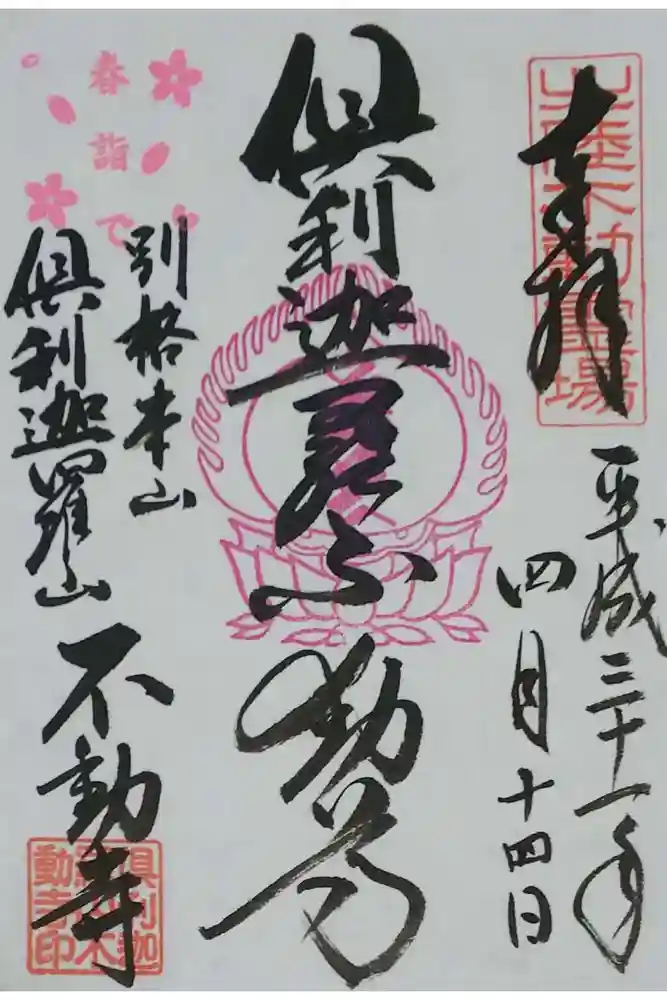 奉拝
三陸不動霊場
平成三十一年
四月十四日
俱利迦羅不動尊
春詣で
別格本山
俱利迦羅山
不動寺
俱利迦羅山不動寺印